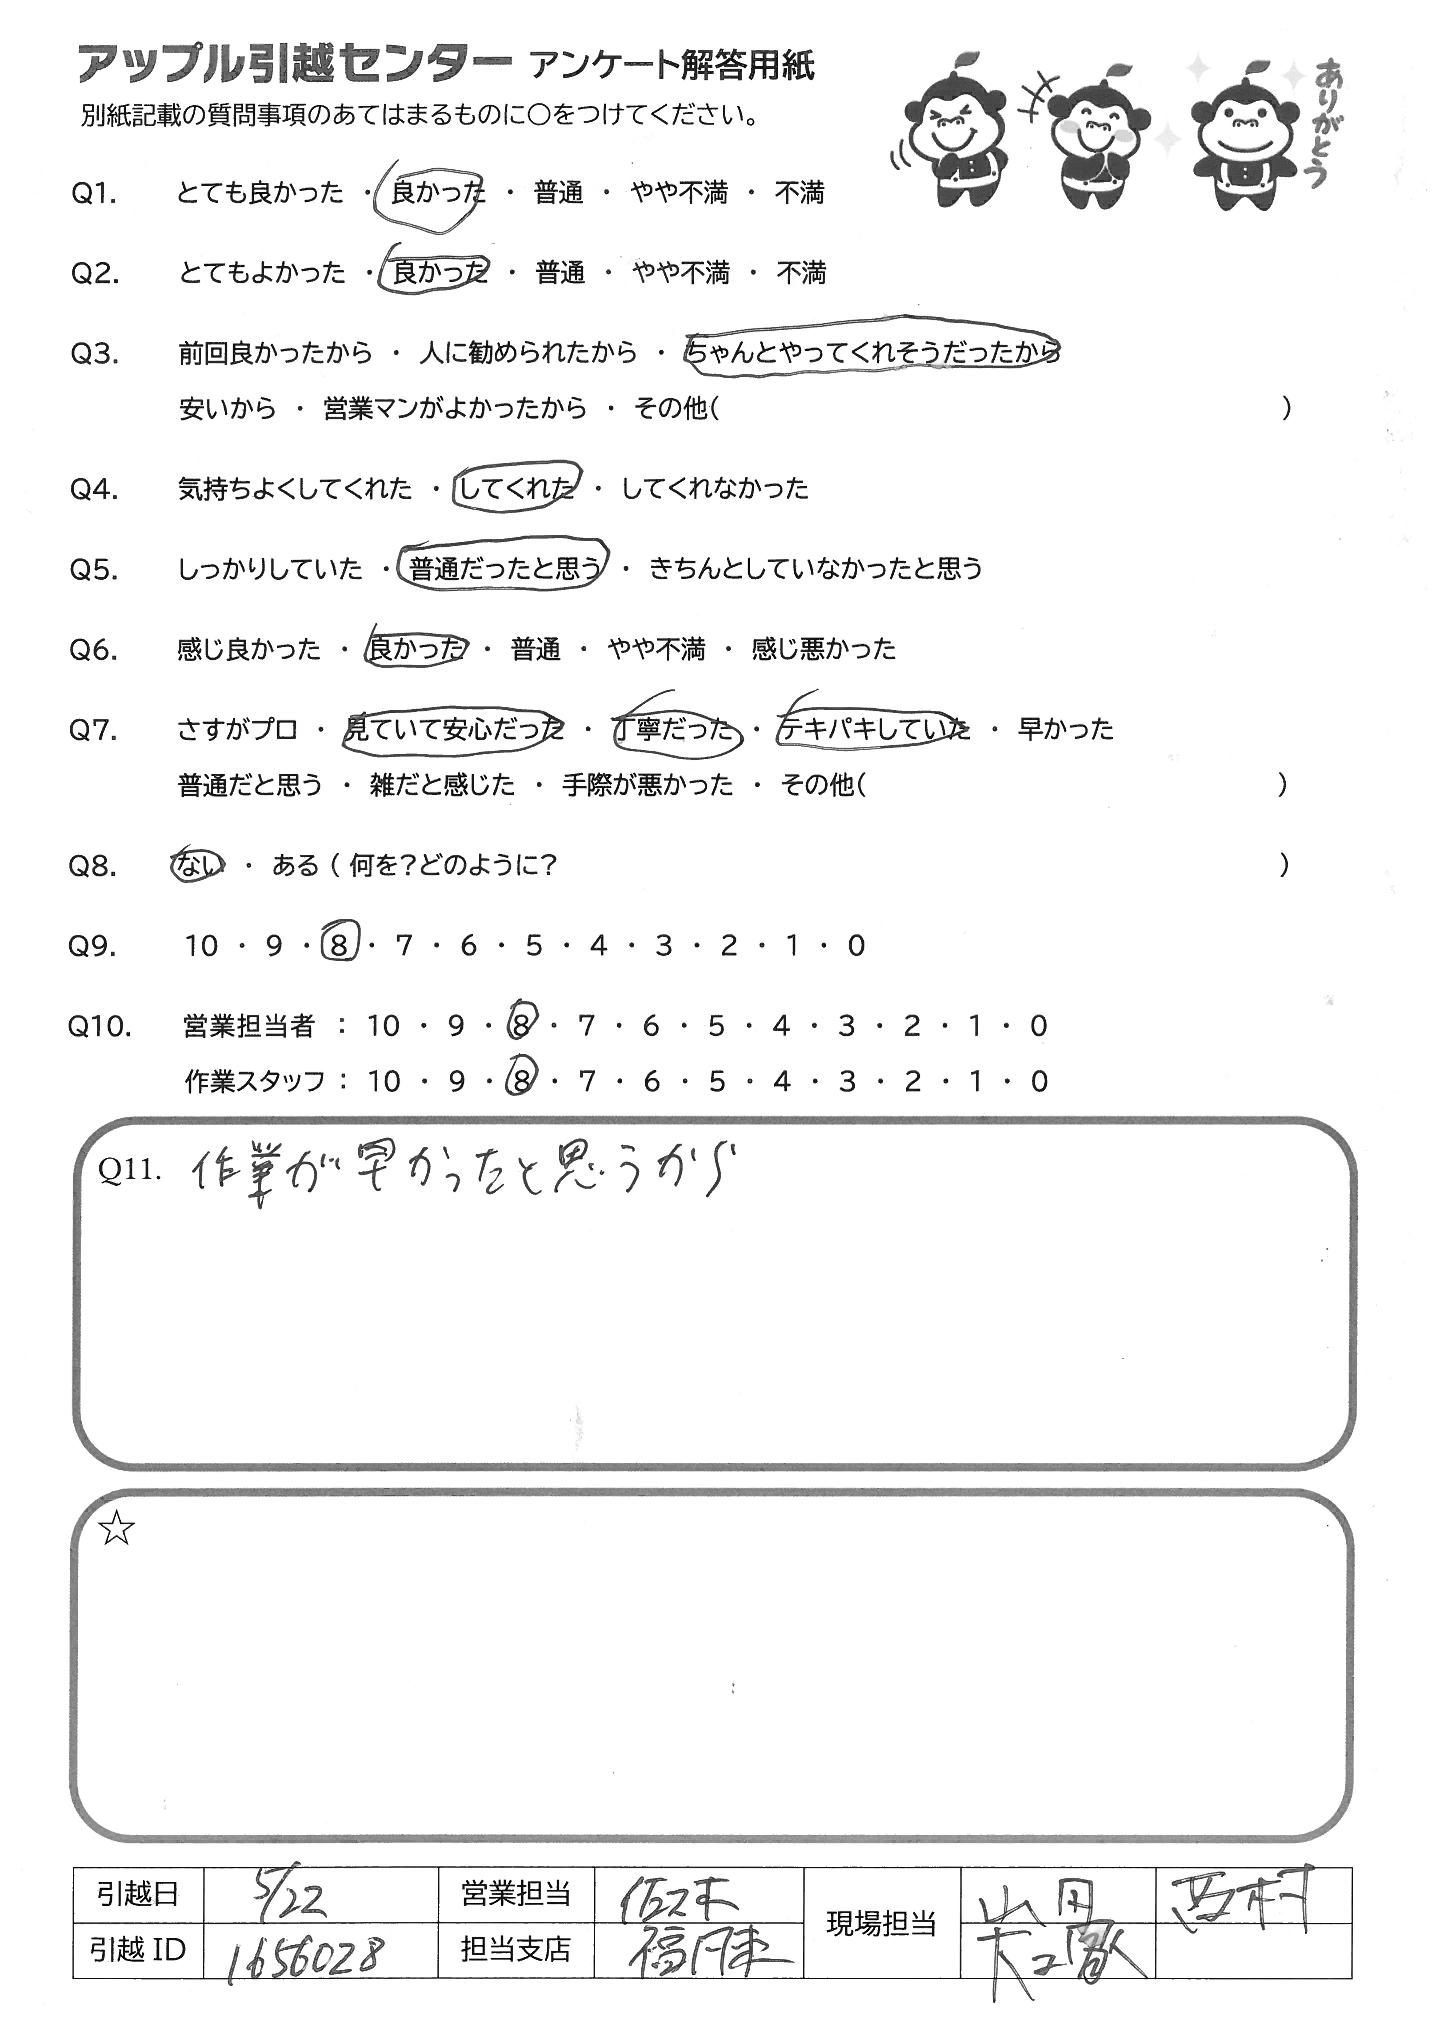 アップル引越センター アンケート解答用紙
別紙記載の質問事項のあてはまるものに○をつけてください。
ありがとう
Q1. とても良かった ・ 良かった ・ 普通 ・ やや不満 ・ 不満
Q2. とてもよかった ・ 良かった ・ 普通 ・ やや不満 ・ 不満
Q3. 前回良かったから ・ 人に勧められたから ・ ちゃんとやってくれそうだったから
安いから ・ 営業マンがよかったから ・ その他( )
Q4. 気持ちよくしてくれた ・ してくれた ・ してくれなかった
Q5. しっかりしていた ・ 普通だったと思う ・ きちんとしていなかったと思う
Q6. 感じ良かった ・ 良かった ・ 普通 ・ やや不満 ・ 感じ悪かった
Q7. さすがプロ ・ 見ていて安心だった ・ 丁寧だった ・ テキパキしていた ・ 早かった
普通だと思う ・ 雑だと感じた ・ 手際が悪かった ・ その他( )
Q8. ない ・ ある ( 何を?どのように? )
Q9. 10 ・ 9 ・ 8 ・ 7 ・ 6 ・ 5 ・ 4 ・ 3 ・ 2 ・ 1 ・ 0
Q10. 営業担当者 : 10 ・ 9 ・ 8 ・ 7 ・ 6 ・ 5 ・ 4 ・ 3 ・ 2 ・ 1 ・ 0
作業スタッフ : 10 ・ 9 ・ 8 ・ 7 ・ 6 ・ 5 ・ 4 ・ 3 ・ 2 ・ 1 ・ 0
Q11. 作業が早かったと思うから
☆
引越日 5/22 営業担当 佐々木 現場担当 山田 西村
引越 ID 1656028 担当支店